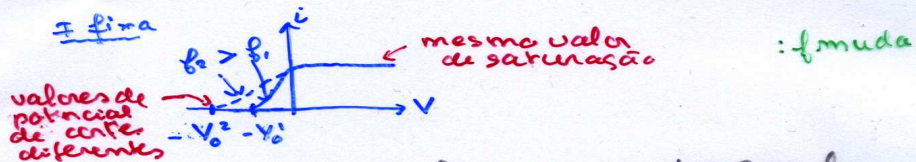 I fixa
i
f₂ > f₁
mesmo valor
de saturação
: f muda
valores de
potencial
de corte
diferentes
- V₀² - V₀¹
V